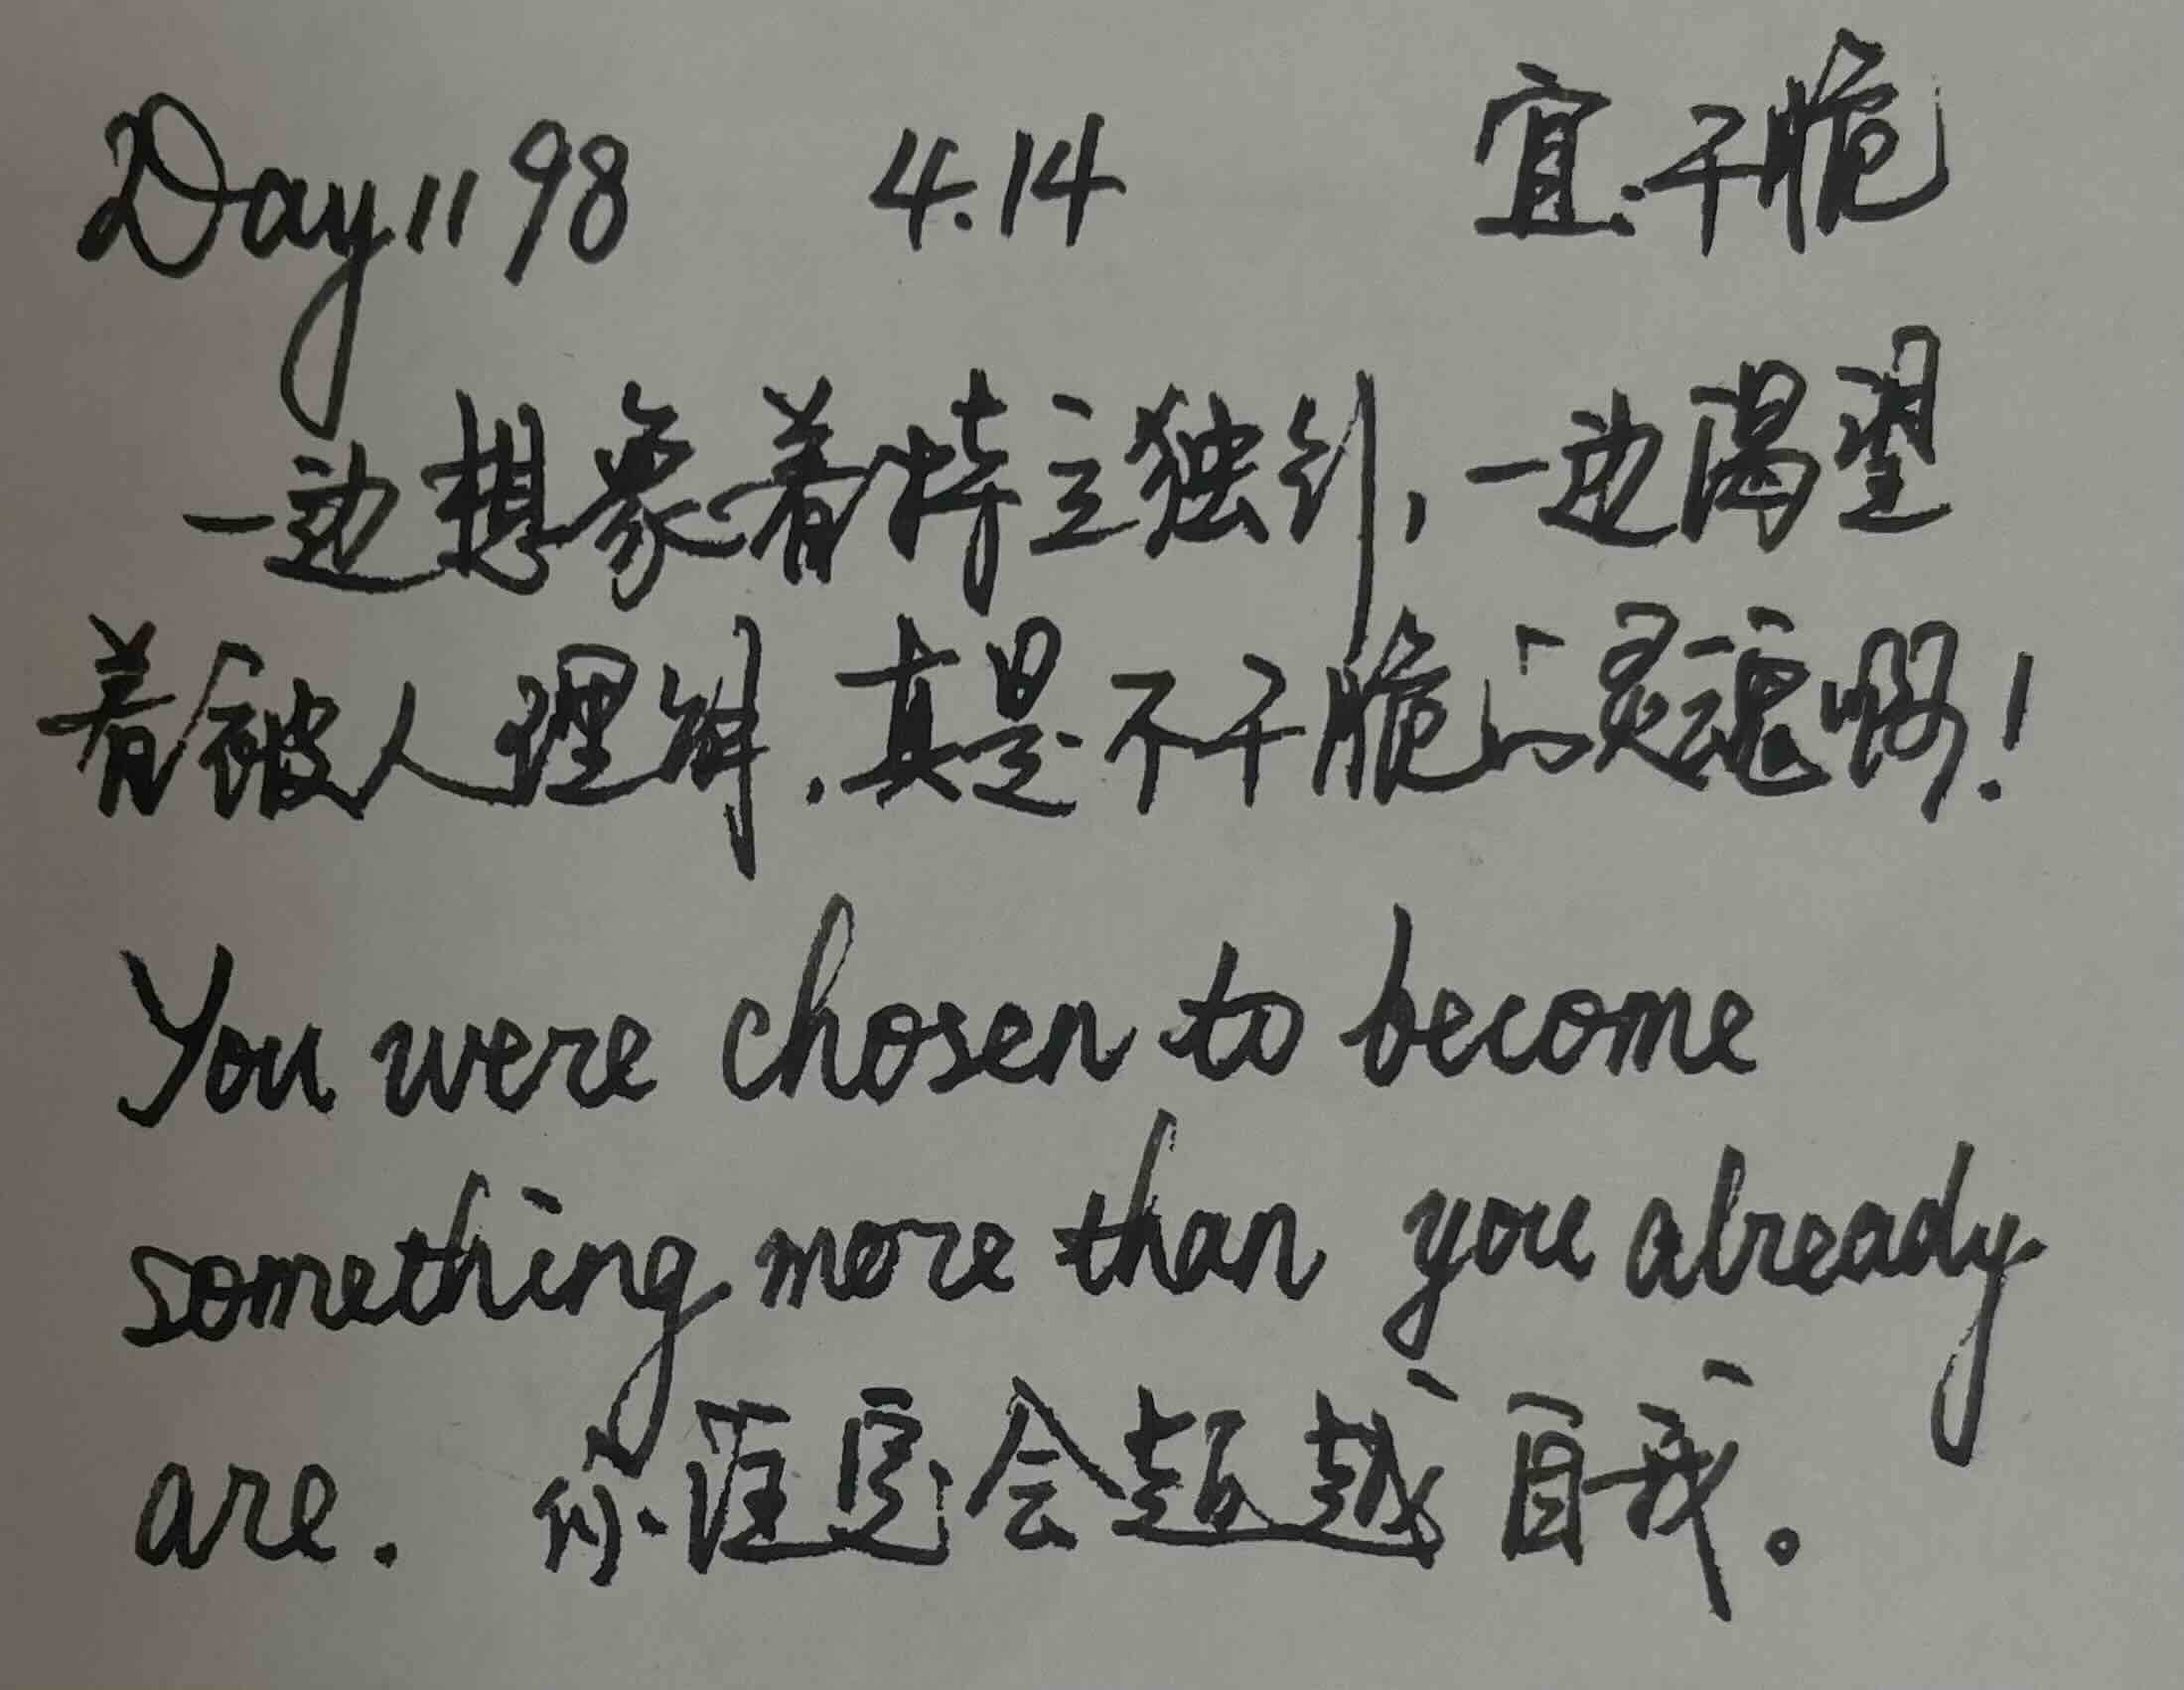 Day 1198 4.14 宜:干脆
一边想象着特立独行,一边渴望
着被人理解,真是不干脆的灵魂啊!
You were chosen to become
something more than you already
are. 你注定会超越自我。